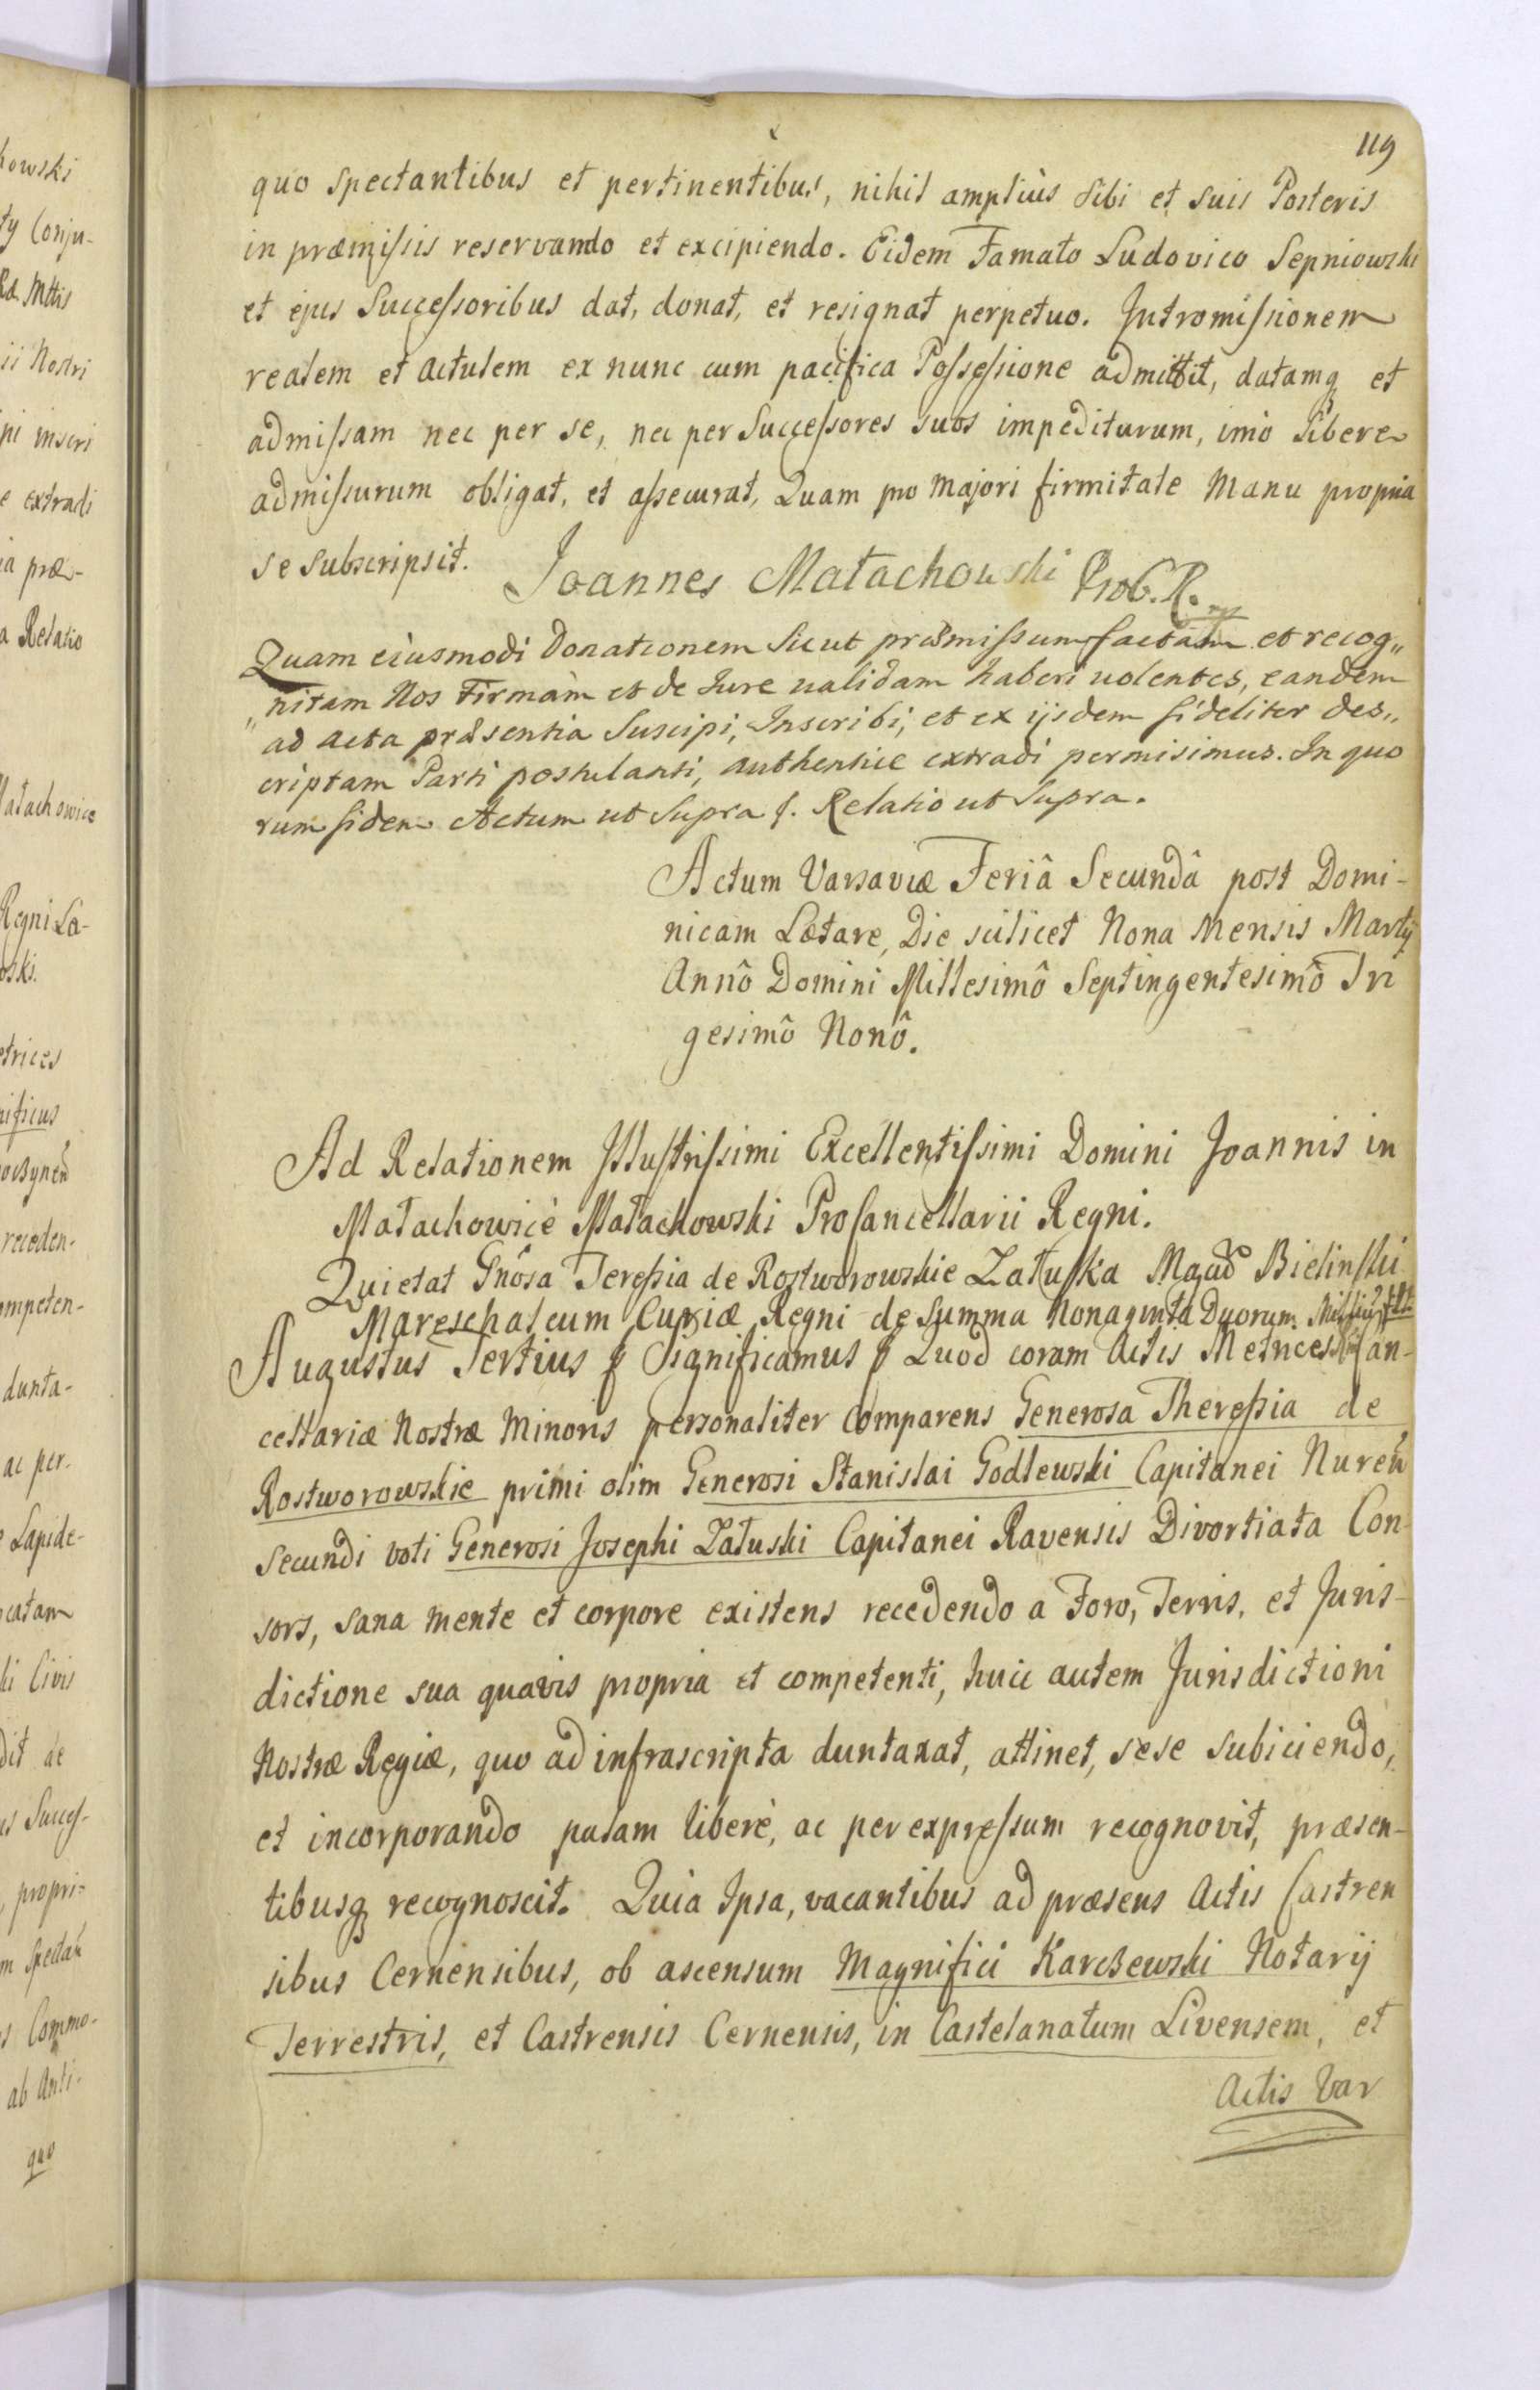 119
quo spectantibus et pertinentibus, nihil ampliùs sibi et suis Posteris
in præmissis reservando et excipiendo. Eidem Famato Ludovico Sepniowski
et ejus Successoribus dat, donat, et resignat perpetuo. Intromissionem
realem et actulem ex nunc cum pacifica Possessione admittit, datamq et
admissam nec per se, nec per Successores suos impediturum, imò libere
admissurum obligat, et assecurat, Quam pro majori firmitate manu propria
se subscripsit. Joannes Małachowski ProC.R.
Quam eiusmodi Donationem Sicut præmissum factam et recog„
„nitam Nos Firmam et de Jure validam haberi volentes, eandem
ad acta præsentia Suscipi, Inscribi, et ex ijsdem fideliter des„
criptam Parti postulanti, authentice extradi permisimus. In quo
rum fidem Actum ut Supra f. Relatio ut Supra.
Actum Varsaviæ Feriâ Secundâ post Domi-
nicam Lætare, Die scilicet Nona Mensis Martij
Annô Domini Millesimô Septingentesimô Tri
gesimô Nonô.
Ad Relationem Illustrissimi Excellentissimi Domini Joannis in
Małachowicè Małachowski ProCancellarii Regni.
Quietat Gnôsa Teressia de Rostworowskie Załuska Magcũ Bielinski
Mareschalcum Curiæ Regni de Summa Nonaginta Duorum
Augustus Tertius f Significamus f Quod coram Actis Metrices Can-
cellariæ Nostræ Minoris personaliter Comparens Generosa Theressia de
Rostworowskie primi olim Generosi Stanislai Godlewski Capitanei Nureñ
secundi voti Generosi Josephi Załuski Capitanei Ravensis Divortiata Con
sors, sana mente et corpore existens recedendo a Foro, Terris, et Juris-
dictione sua quavis propria et competenti, huic autem Jurisdictioni
Nostræ Regiæ, quo ad infrascripta duntaxat, attinet, sese subiciendo,
et incorporando palam liberè, ac per expressum recognovit, præsen-
tibusq recognoscit. Quia Ipsa, vacantibus ad præsens Actis Castren
sibus Cernensibus, ob ascensum Magnifici Karczewski Notarij
Terrestris, et Castrensis Cernensis, in Castelanatum Livensem, et
Actis Var
howski
ty Conju-
Rå Mttis
ii Nostri
pi inscri
e extradi
ia præ-
a Relatio
Małachowice
Regni Lo-
oski.
etrices
nificus
receden-
ompeten-
dunta-
ac per-
Lapide-
catam
ki Civis
dit de
us Succes-
propri-
m Spectañ
s Commo-
ab Anti-
quo